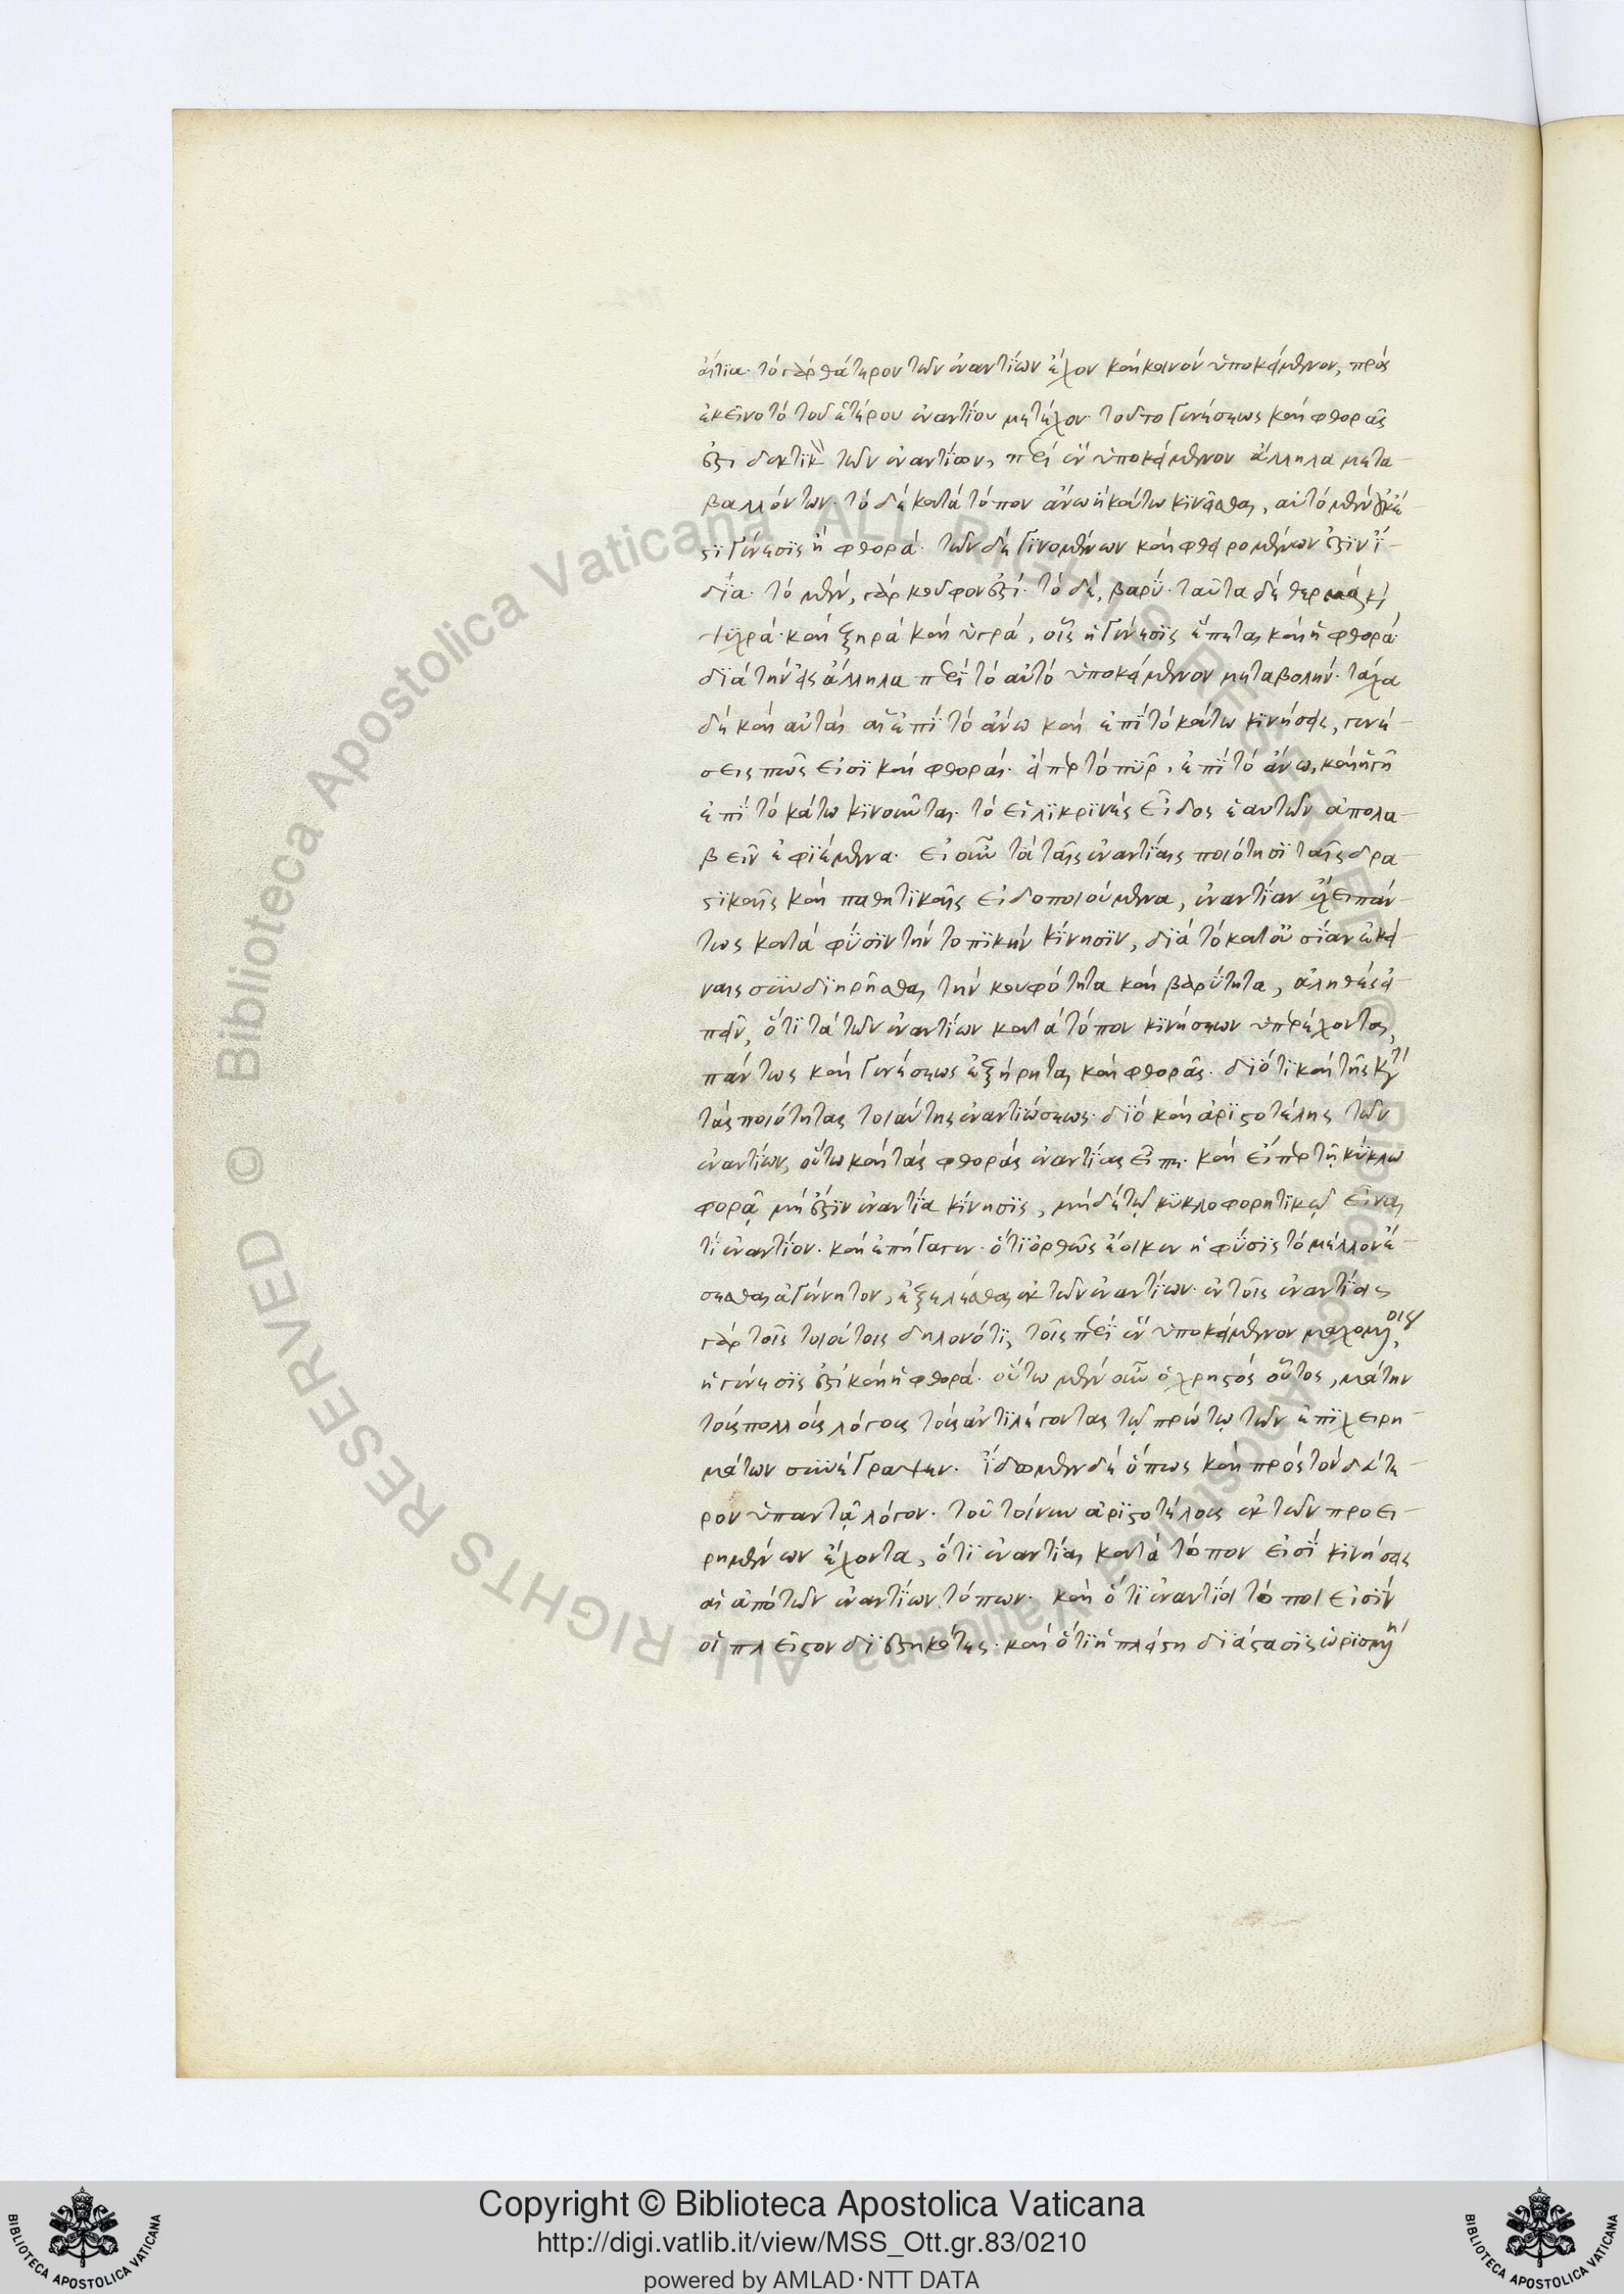 αίτια· τὸ γὰρ θάτερον τῶν ἐναντίων ἔχον καὶ κοινὸν ὑποκείμενον, πρὸς
ἐκεῖνο τὸ τοῦ ἑτέρου ἐναντίου μετέχον· τοῦτο γενέσεως καὶ φθορᾶς
ἐστι δεκτικὸν τῶν ἐναντίων, περὶ ἓν ὑποκείμενον ἄλληλα μετα-
βαλλόντων. τὸ δὲ κατὰ τόπον ἄνω ἢ κάτω κινεῖσθαι, αὐτὸ μὲν οὐκ ἔ-
στι γένεσις ἢ φθορά· τῶν δὲ γινομένων καὶ φθειρομένων ἐστὶν ἴ-
δια. τὸ μὲν, γὰρ κοῦφον ἐστί· τὸ δὲ, βαρύ· ταῦτα δὲ θερμὰ καὶ
ψυχρά· καὶ ξηρὰ καὶ ὑγρά, οἷς ἡ γένεσις ἕπεται καὶ ἡ φθορά·
διὰ τὴν εἰς ἄλληλα περὶ τὸ αὐτὸ ὑποκείμενον μεταβολήν· τάχα
δὲ καὶ αὐταὶ αἱ ἐπὶ τὸ ἄνω καὶ ἐπὶ τὸ κάτω κινήσεις, γενέ-
σεις πως εἰσὶ καὶ φθοραί· εἴπερ τὸ πῦρ, ἐπὶ τὸ ἄνω, καὶ ἡ γῆ
ἐπὶ τὸ κάτω κινοῦνται· τὸ εἰλικρινὲς εἶδος ἑαυτῶν ἀπολα-
βεῖν ἐφιέμενα. εἰ οὖν τὰ ταῖς ἐναντίαις ποιότησι ταῖς δρα-
στικαῖς καὶ παθητικαῖς εἰδοποιούμενα, ἐναντίαν ἔχει πάν-
τως κατὰ φύσιν τὴν τοπικὴν κίνησιν, διὰ τὸ κατ' οὐσίαν ἐκεί-
ναις συνδιῃρῆσθαι τὴν κουφότητα καὶ βαρύτητα, ἀληθὲς εἰ-
πεῖν, ὅτι τὰ τῶν ἐναντίων κατὰ τόπον κινήσεων ὑπερέχοντα,
πάντως καὶ γενέσεως ἐξῄρηται καὶ φθορᾶς. διότι καὶ τῆς κατὰ
τὰς ποιότητας τοιαύτης ἐναντιώσεως· διὸ καὶ ἀριστοτέλης τῶν
ἐναντίων, οὕτω καὶ τὰς φθορὰς ἐναντίας εἶπε. καὶ εἴπερ τῇ κύκλω
φορᾷ μή ἐστιν ἐναντία κίνησις, μηδὲ τῷ κυκλοφορητικῷ εἶναι
τι ἐναντίον. καὶ ἐπήγαγεν· ὅτι ὀρθῶς ἔοικεν ἡ φύσις τὸ μέλλον ἔ-
σεσθαι ἀγέννητον, ἐξελέσθαι ἐκ τῶν ἐναντίων· ἐν τοῖς ἐναντίοις
γὰρ τοῖς τοιούτοις δηλονότι, τοῖς περὶ ἓν ὑποκείμενον μαχομένοις,
ἡ γένεσις ἐστὶ καὶ ἡ φθορά. οὕτω μὲν οὖν ὁ χρηστὸς οὗτος, μάτην
τοὺς πολλοὺς λόγους τοὺς ἀντιλέγοντας τῷ πρώτῳ τῶν ἐπιχειρη-
μάτων συνέγραψεν. ἴδωμεν δὲ ὅπως καὶ πρὸς τὸν δεύτε-
ρον ὑπαντᾷ λόγον. τοῦ τοίνυν ἀριστοτέλους ἐκ τῶν προει-
ρημένων ἔχοντα, ὅτι ἐναντίαι κατὰ τόπον εἰσὶ κινήσεις
αἱ ἀπὸ τῶν ἐναντίων τόπων. καὶ ὅτι ἐναντίοι τόποι εἰσὶν
οἱ πλεῖστον διεστηκότες· καὶ ὅτι ἡ πλείστη διάστασις ὡρισμένη
Copyright © Biblioteca Apostolica Vaticana
http://digi.vatlib.it/view/MSS_Ott.gr.83/0210
powered by AMLAD·NTT DATA